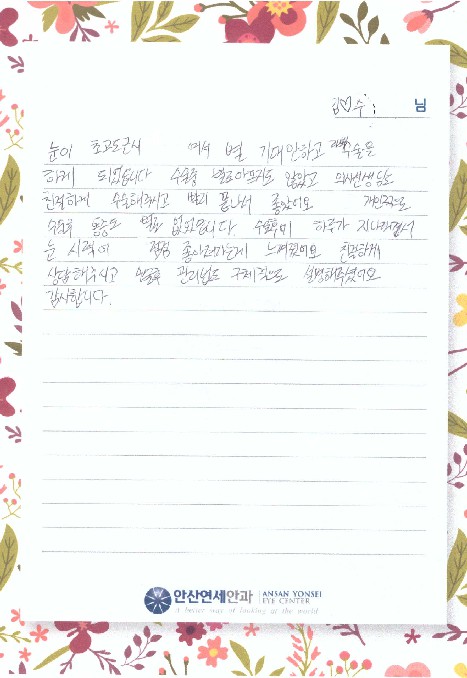 김♡수 님
눈이 초고도근시 여서 별 기대안하고 라섹수술을
하게 되었습니다 수술중 별로아프지도 않았고 의사선생님도
친절하게 수술해주시고 빨리 끝나서 좋았어요 개인적으로
수술후 통증도 별로 없었습니다. 수술후에 하루가 지나면서
눈 시력이 점점 좋아지는게 느껴졌어요 친절하게
상담해주시고 수술후 관리법도 구체적으로 설명해주셨어요
감사합니다.
안산연세안과 ANSAN YONSEI
EYE CENTER
A better way of looking at the world